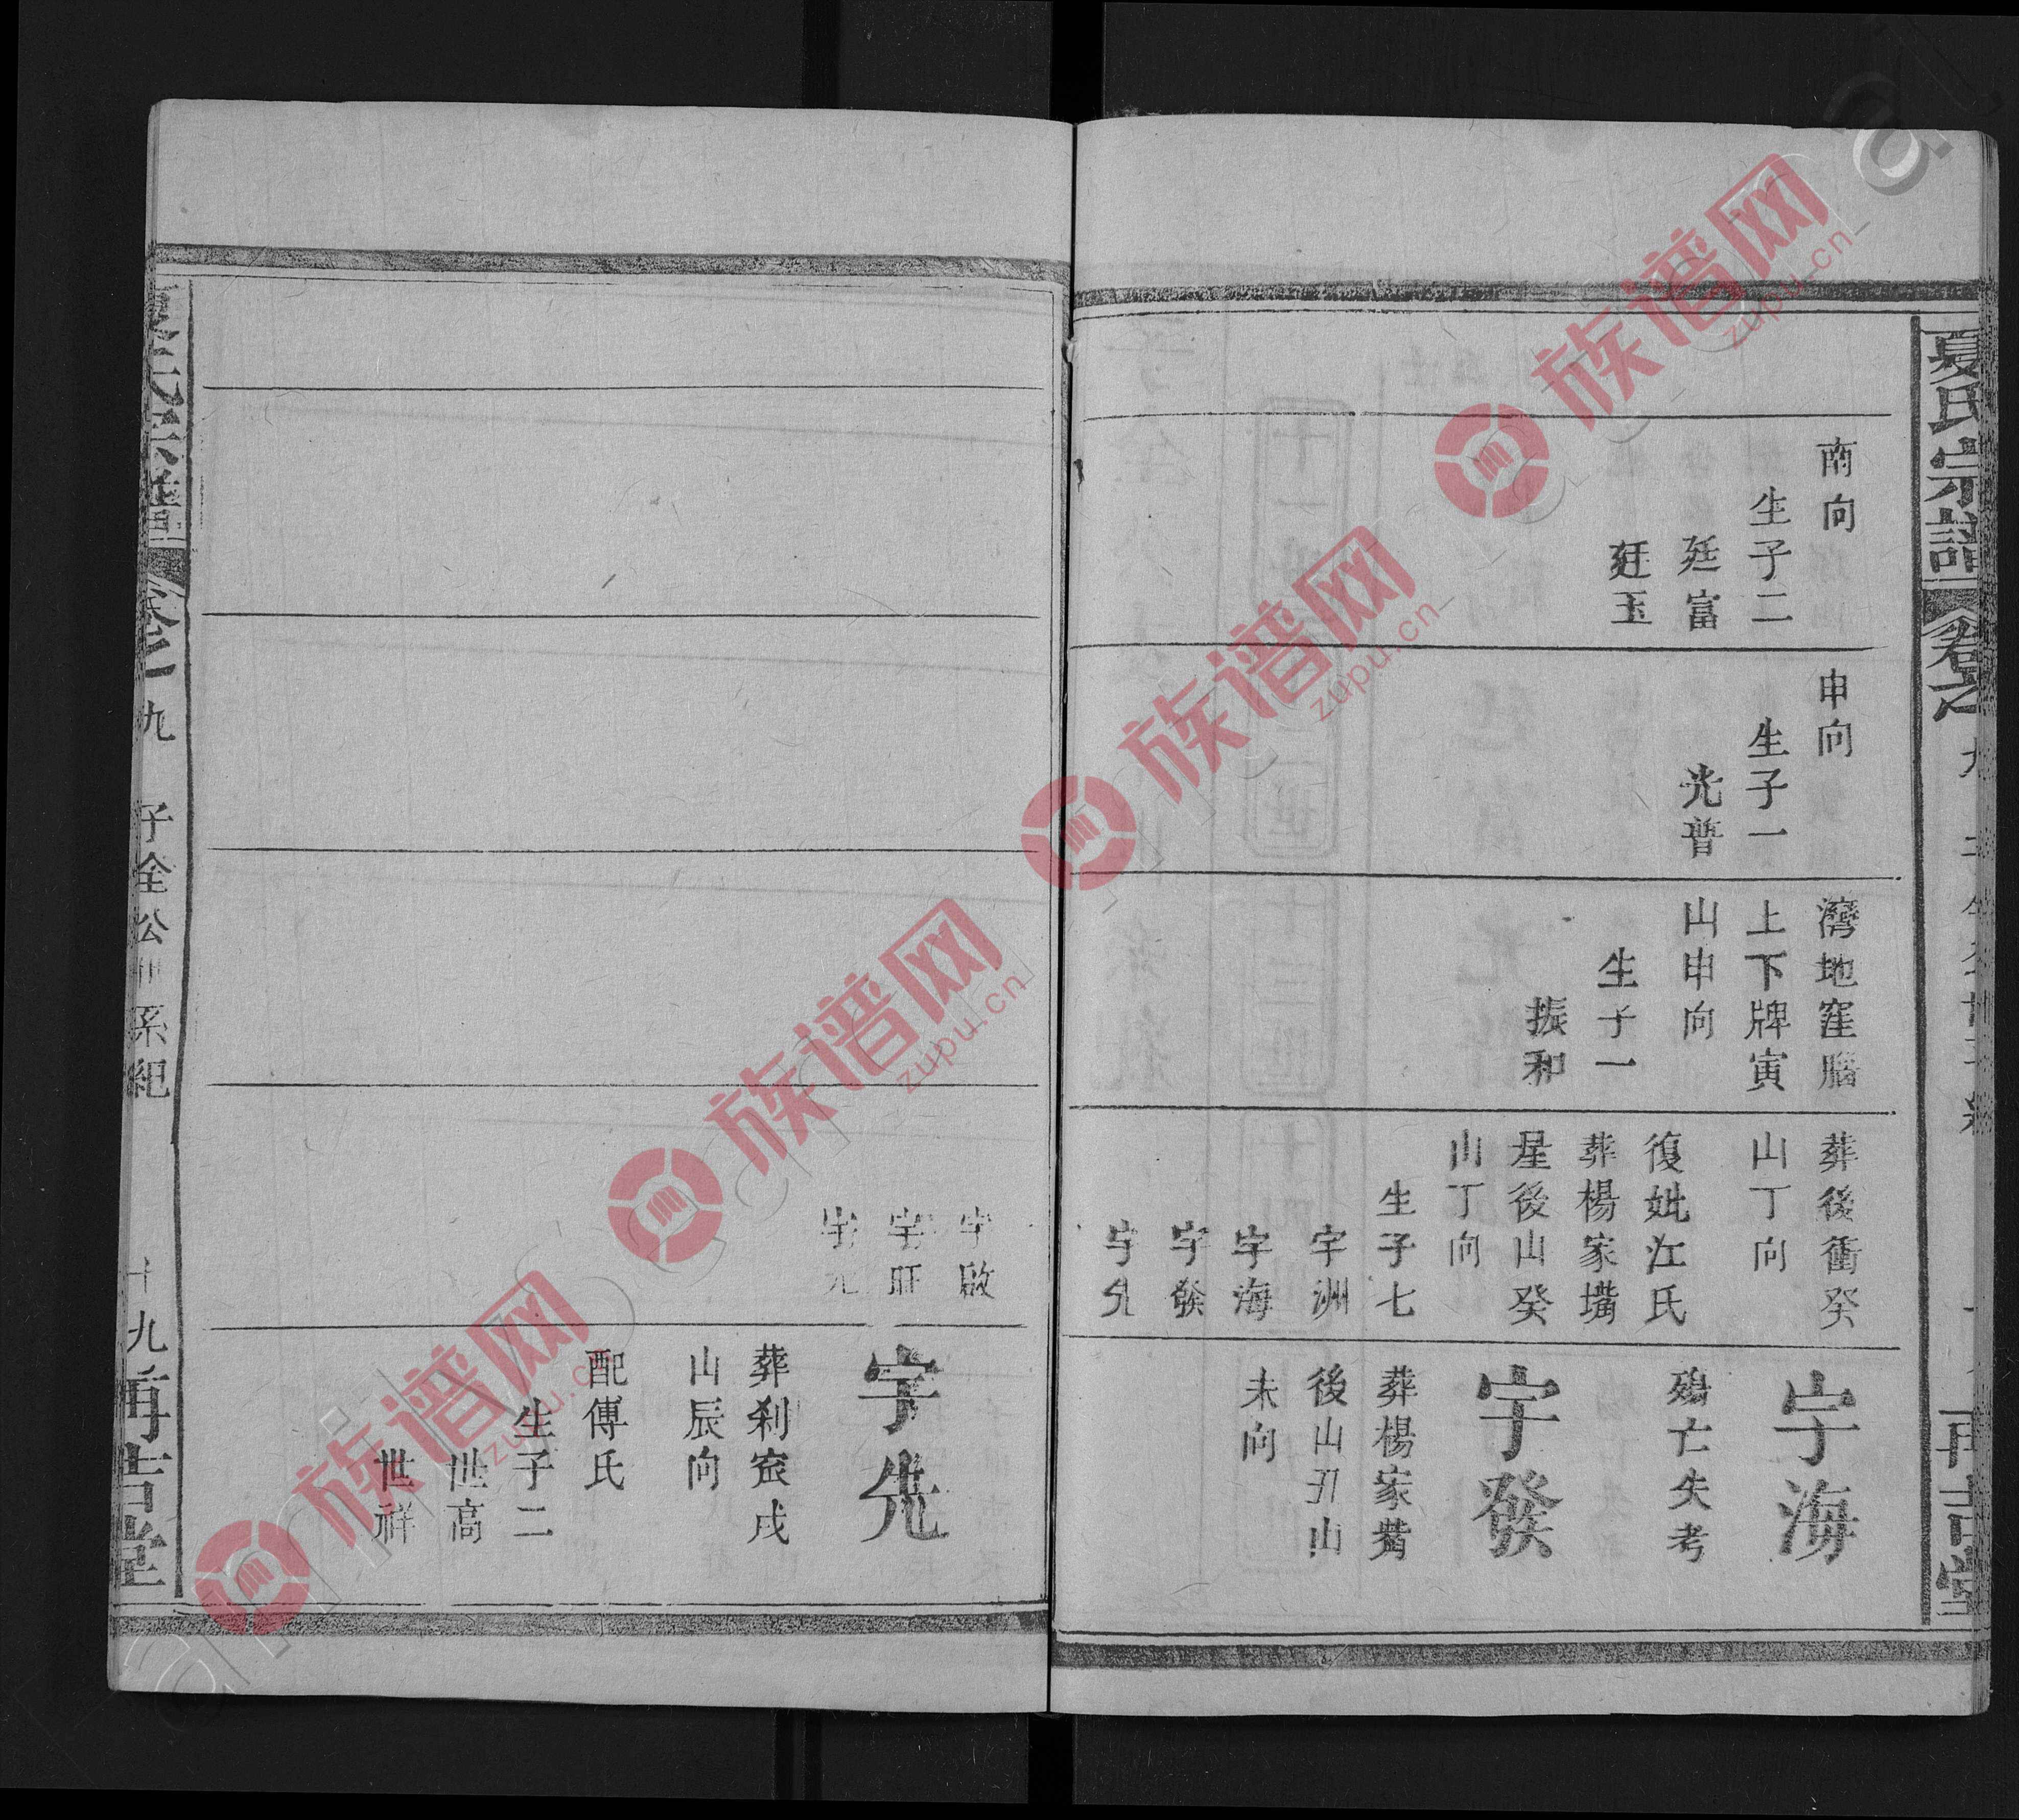 夏氏宗譜
南向
生子二
廷富
廷玉
申向
生子一
光普
灣地窪腦
上下牌寅
山申向
生子一
振和
葬後衝癸
山丁向
復妣江氏
葬楊家嘴
星後山癸
山丁向
生子七
宇洲
宇海
宇發
宇先
宇海
殤亡失考
宇發
葬楊家嘴
後山丑山
未向
再吉堂
宇啟
宇旺
宇元
宇先
葬剎窊戌
山辰向
配傅氏
生子二
世高
世祥
夏氏宗譜
卷之一
九
子全公世系紀
十九
再吉堂
族谱网
zupu.cn
族谱网
zupu.cn
族谱网
zupu.cn
族谱网
zupu.cn